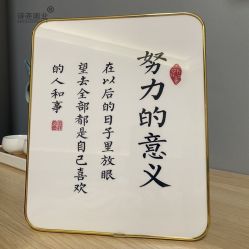 努力的意义
在以后的日子里放眼
望去全部都是自己喜欢
的人和事